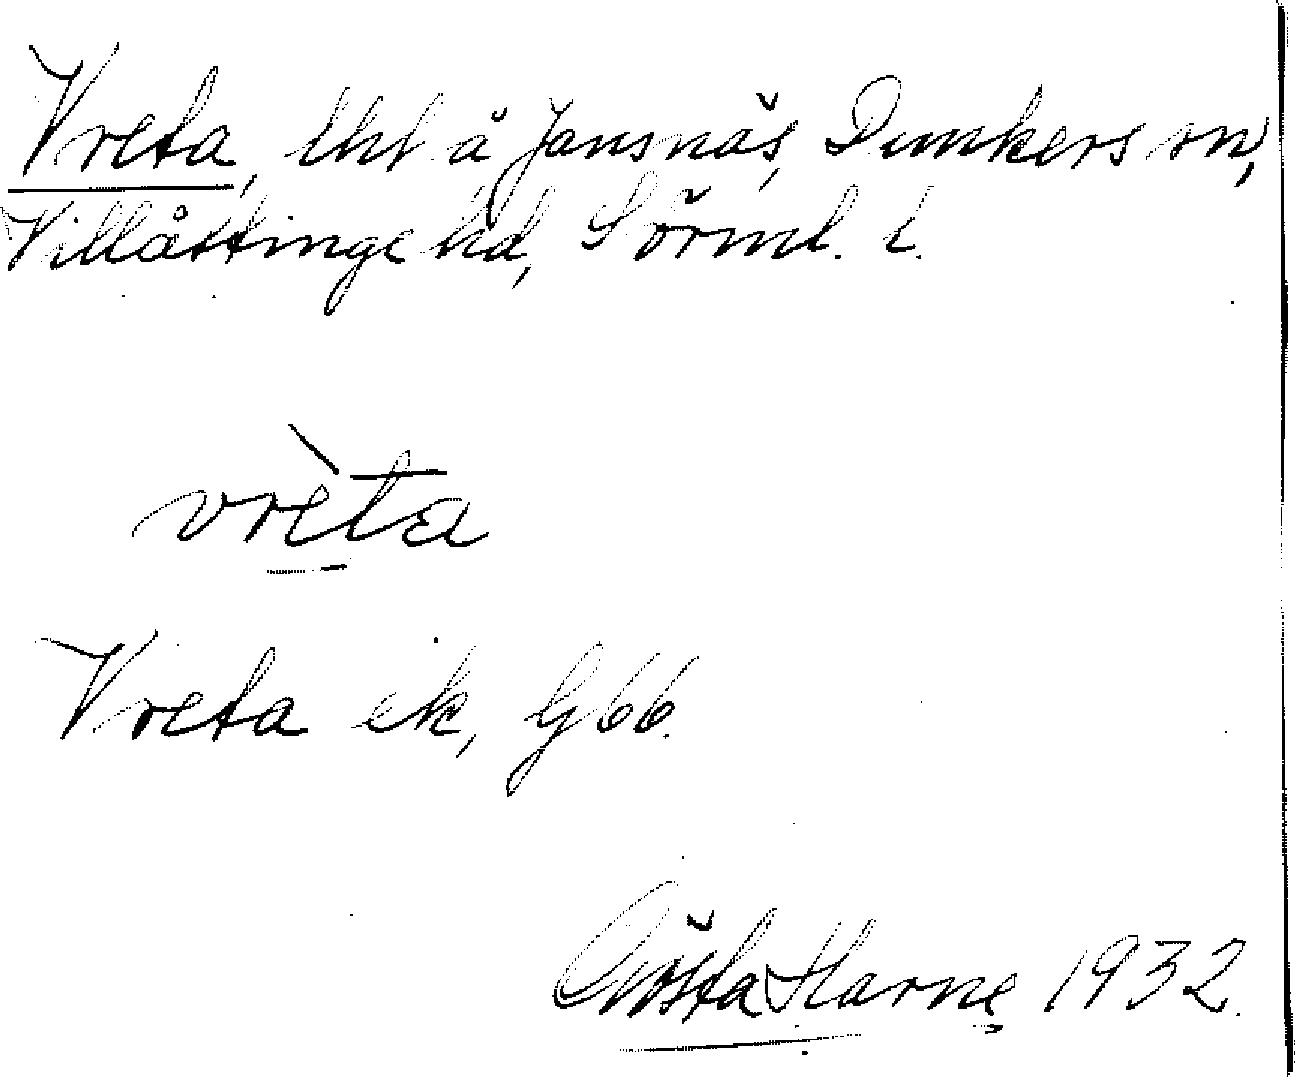 Vreta, tht å Jansnäs, Dunkers sn,
Villåttinge hd, Sörml. l.
vrèta
Vreta ek, G66.
Gösta Harne 1932.